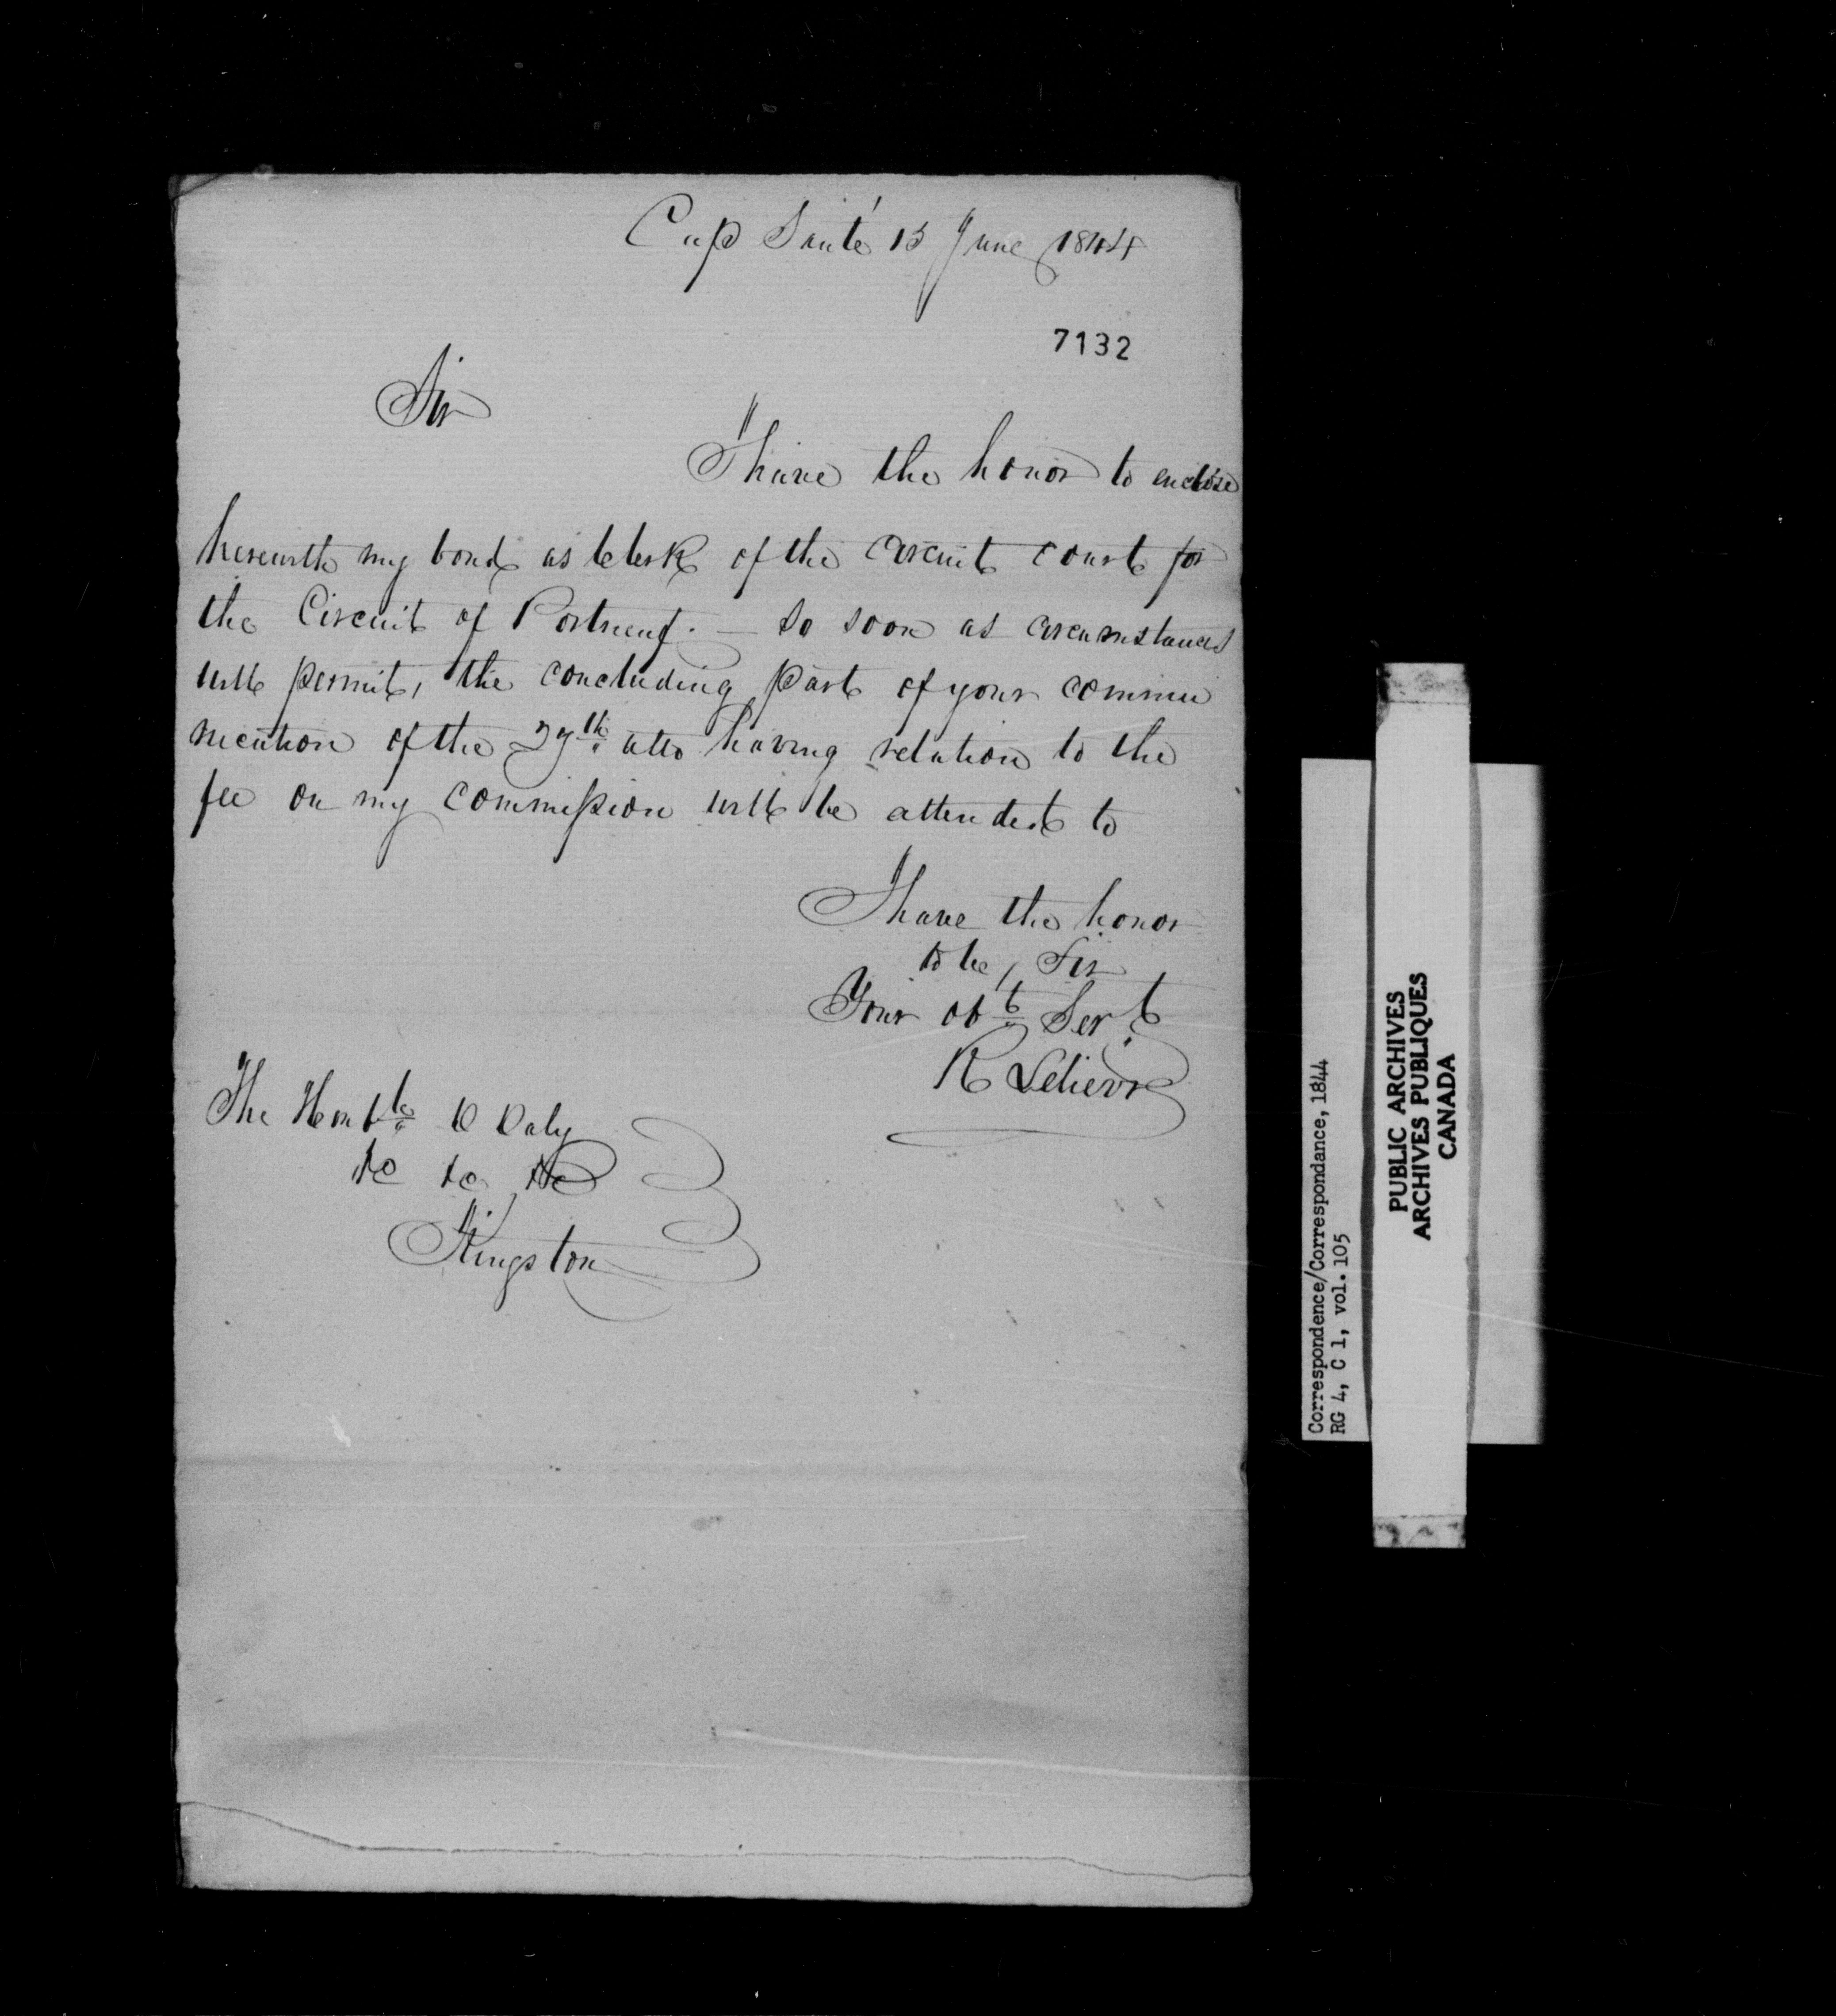 Cap Santé 15 June 1844
7132
Sir
I have the honor to enclose
herewith my bond as Clerk of the Circuit Court for
the Circuit of Portneuf. — So soon as circumstances
will permit, the concluding part of your commu
nication of the 27th ulto having relation to the
fee on my commission will be attended to
I have the honor
to be, Sir
Your obt Sert
R Lelievre
The Honble D Daly
&c &c &c
Kingston
Correspondence/Correspondance, 1844
RG 4, C 1, vol. 105
PUBLIC ARCHIVES
ARCHIVES PUBLIQUES
CANADA